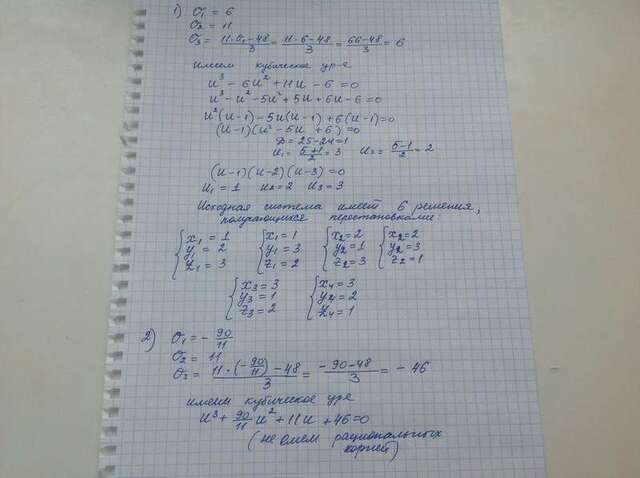 1) σ₁ = 6
σ₂ = 11
σ₃ = (11·σ₁ - 48)/3 = (11·6 - 48)/3 = (66 - 48)/3 = 6
имеем кубическое ур-е
u³ - 6u² + 11u - 6 = 0
u³ - u² - 5u² + 5u + 6u - 6 = 0
u²(u-1) - 5u(u-1) + 6(u-1) = 0
(u-1)(u² - 5u + 6) = 0
D = 25 - 24 = 1
u₁ = (5+1)/2 = 3 u₂ = (5-1)/2 = 2
(u-1)(u-2)(u-3) = 0
u₁ = 1 u₂ = 2 u₃ = 3
Исходная система имеет 6 решения,
получающихся перестановками:
{x₁ = 1 {x₁ = 1 {x₂ = 2 {x₂ = 2
y₁ = 2 y₁ = 3 y₂ = 1 y₂ = 3
z₁ = 3 z₁ = 2 z₂ = 3 z₂ = 1
{x₃ = 3 {x₄ = 3
y₃ = 1 y₄ = 2
z₃ = 2 z₄ = 1
2) σ₁ = - 90/11
σ₂ = 11
σ₃ = (11·(-90/11) - 48)/3 = (-90 - 48)/3 = - 46
имеем кубическое ур-е
u³ + 90/11 u² + 11u + 46 = 0
(не имеем рациональных
корней)